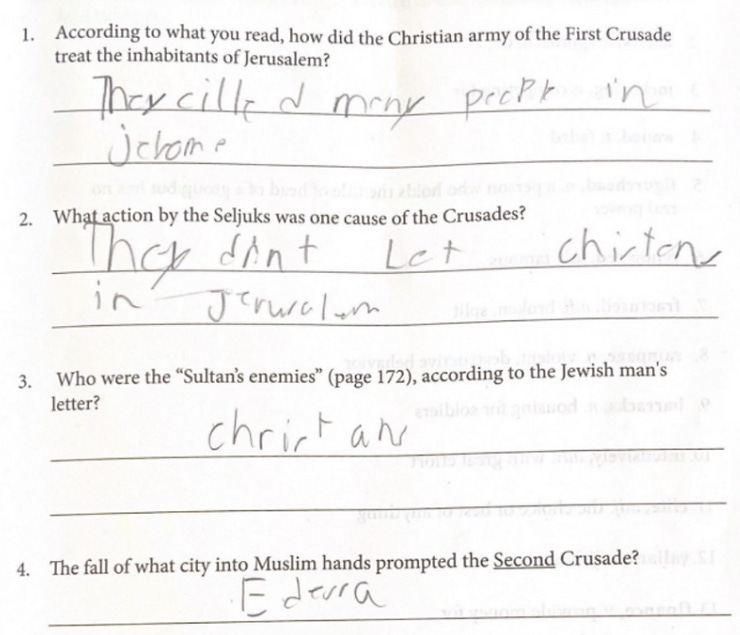 1. According to what you read, how did the Christian army of the First Crusade
treat the inhabitants of Jerusalem?
They cilled many peeple in
jerome
2. What action by the Seljuks was one cause of the Crusades?
They dint Let chirtens
in Jeruralem
3. Who were the “Sultan’s enemies” (page 172), according to the Jewish man's
letter?
christans
4. The fall of what city into Muslim hands prompted the Second Crusade?
Edessa